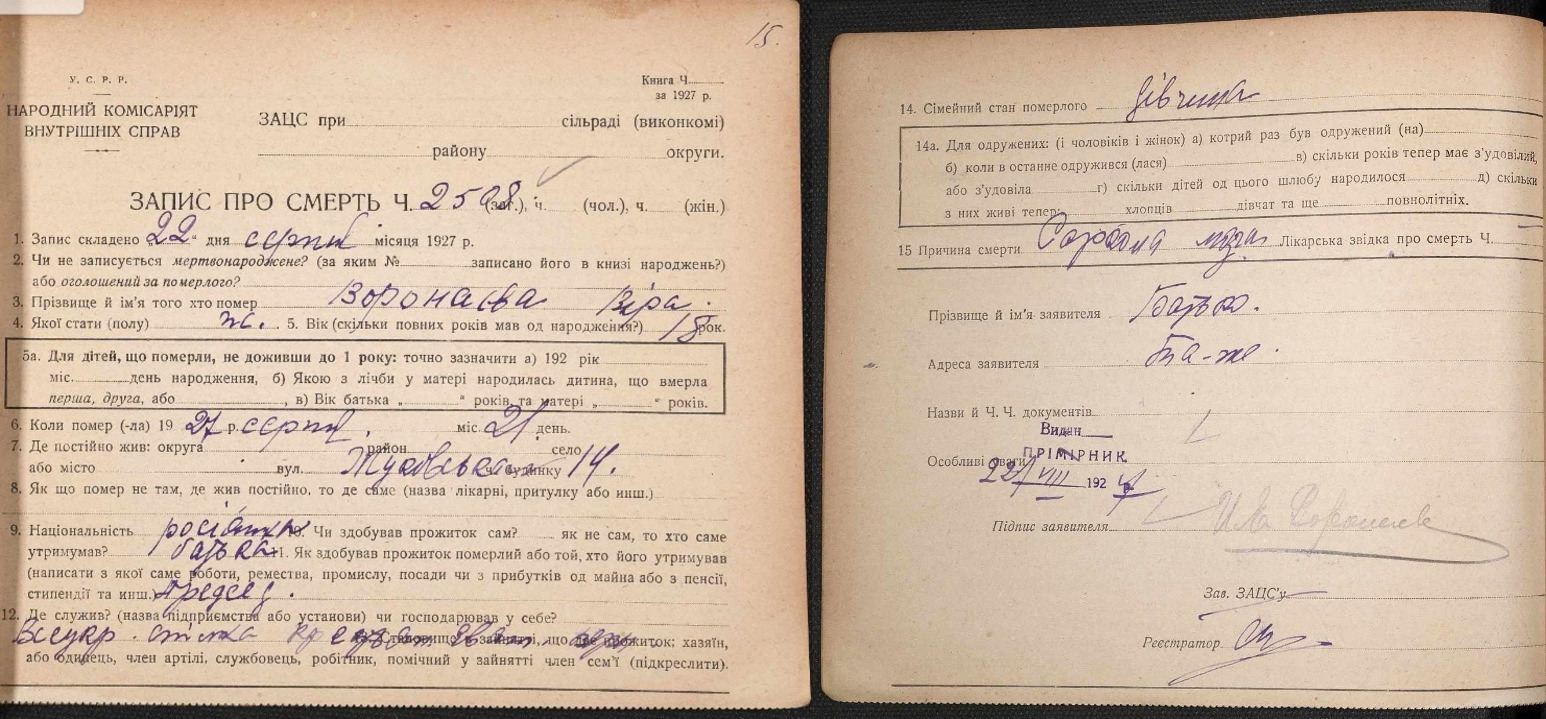 15.
У. С. Р. Р.
Книга Ч.
за 1927 р.
НАРОДНИЙ КОМІСАРІЯТ
ВНУТРІШНІХ СПРАВ
ЗАЦС при сільраді (виконкомі)
району округи.
ЗАПИС ПРО СМЕРТЬ Ч. 2508 (заг.), ч. (чол.), ч. (жін.)
1. Запис складено „22“ дня серпня місяця 1927 р.
2. Чи не записується мертвонароджене? (за яким № записано його в книзі народжень?)
або оголошений за померлого?
3. Прізвище й ім'я того хто помер Воронаєва Віра.
4. Якої стати (полу) ж. 5. Вік (скільки повних років мав од народження?) 18 рок.
5а. Для дітей, що померли, не доживши до 1 року: точно зазначити а) 192 рік
міс. день народження, б) Якою з лічби у матері народилась дитина, що вмерла
перша, друга, або , в) Вік батька „ “ років, та матері „ “ років.
6. Коли помер (-ла) 1927 р. серпня міс. 21 день.
7. Де постійно жив: округа район село
або місто вул. ч. будинку 14.
8. Як що помер не там, де жив постійно, то де саме (назва лікарні, притулку або инш.)
9. Національність росіянка 10. Чи здобував прожиток сам? як не сам, то хто саме
утримував? батько 11. Як здобував прожиток померлий або той, хто його утримував
(написати з якої саме роботи, ремества, промислу, посади чи з прибутків од майна або з пенсії,
стипендії та инш.) Председ.
12. Де служив? (назва підприємства або установи) чи господарював у себе?
Всеукр. спілка Становище в зайнятті, що дає прожиток: хазяїн,
або одинець, член артілі, службовець, робітник, помічний у зайнятті член сем'ї (підкреслити).
14. Сімейний стан померлого дівчина
14а. Для одружених: (і чоловіків і жінок) а) котрий раз був одружений (на)
б) коли в останне одружився (лася) в) скільки років тепер має з'удовілий,
або з'удовіла г) скільки дітей од цього шлюбу народилося д) скільки
з них живі тепер: хлопців дівчат та ще повнолітніх.
15 Причина смерти Саркома Лікарська звідка про смерть Ч.
Прізвище й ім'я заявителя Батько.
Адреса заявителя Та-же.
Назви й Ч. Ч. документів
Видан
ПРІМІРНИК
Особливі уваги
22/VIII 1927
Підпис заявителя
Зав. ЗАЦС'у
Реєстратор